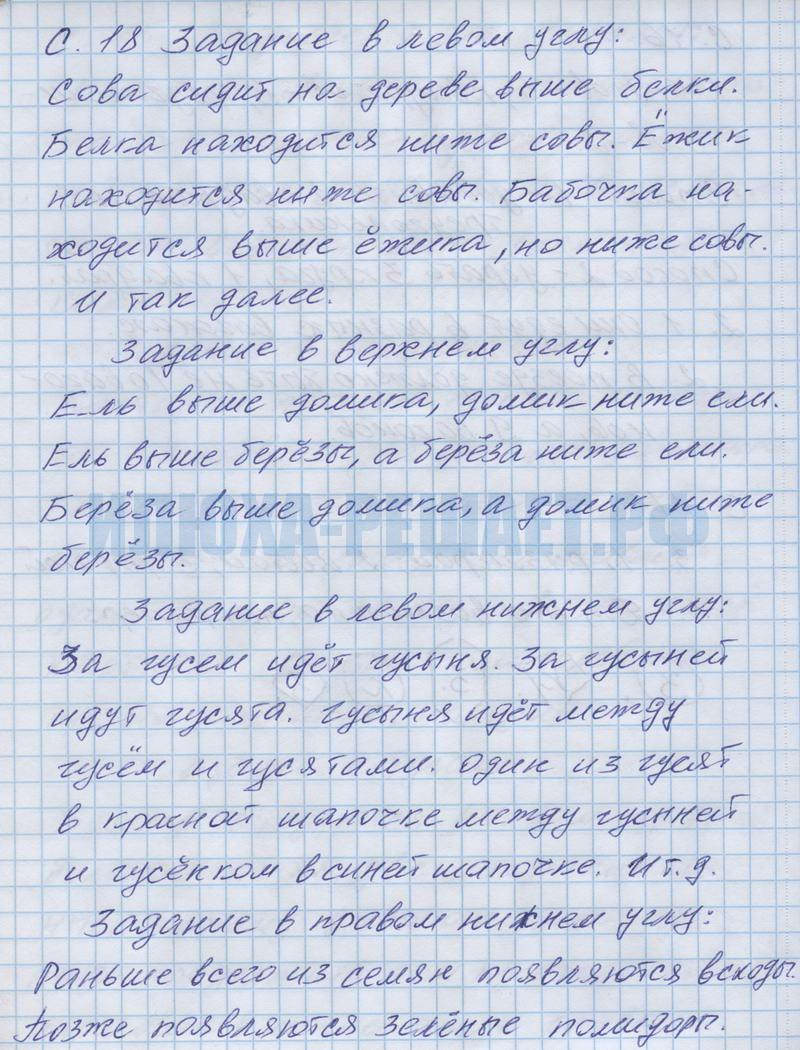 С. 18 Задание в левом углу:
Сова сидит на дереве выше белки.
Белка находится ниже совы. Ёжик
находится ниже совы. Бабочка на-
ходится выше ёжика, но ниже совы.
И так далее.
Задание в верхнем углу:
Ель выше домика, домик ниже ели.
Ель выше берёзы, а берёза ниже ели.
Берёза выше домика, а домик ниже
ШКОЛА-РЕШАЕТ.РФ
берёзы.
Задание в левом нижнем углу:
За гусем идёт гусыня. За гусыней
идут гусята. Гусыня идёт между
гусём и гусятами. Один из гусят
в красной шапочке между гусыней
и гусёнком в синей шапочке. И т.д.
Задание в правом нижнем углу:
Раньше всего из семян появляются всходы.
Позже появляются зелёные помидоры.